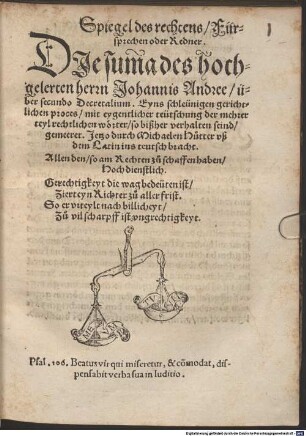 Spiegel des rechtens / Für-
sprechen oder Redner.
DIe sum̃a des hoch-
gelerten herrn Johannis Andree / ü-
ber secundo Decretalium. Eyns schleünigen gericht-
lichen proces / mit eygentlicher teütschung der mehrer
teyl rechtlichen wörter / so bißher verhalten seind /
gemeret. Jetzo durch Michaelen
dem Latin ins teutsch bracht.
Allen den / so am Rechten zů schaffen haben /
Hoch dienstlich.
Gerechtigkeyt die wag bedeüten ist /
Zier eyn Richter zů aller frist.
So er vrteylt nach billicheyt /
Zů vil scharpff ist vngerechtigkeyt.
Psal. 106. Beatus vir qui miseretur, & cõmodat, dis-
pensabit verba sua in Iuditio.